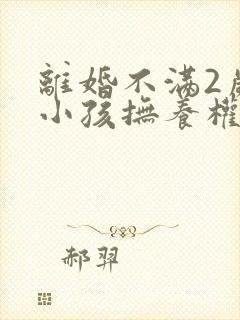 離婚不满2歲
小孩撫養權
郝羿